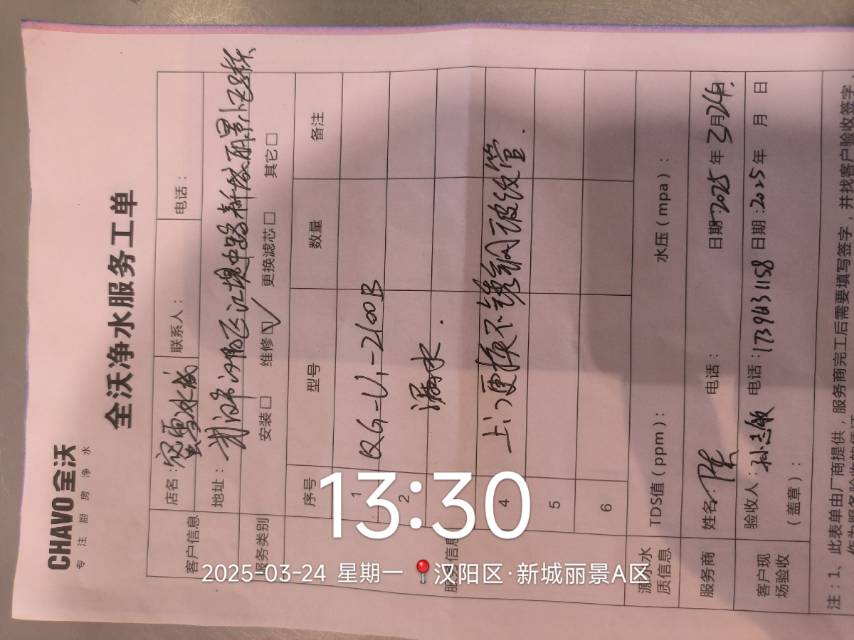 CHAVO全沃
专注厨房净水
全沃净水服务工单
客户信息
店名：蜜雪冰城
联系人：
电话：
地址：
服务类别
安装□ 维修☑ 更换滤芯□ 其它□
服务信息
序号 型号 数量 备注
1 RG-U1-2100B
2 漏水.
4 上门更换不锈钢波纹管.
5
6
源水水质信息
TDS值（ppm）：
水压（mpa）：
服务商
姓名：陈
电话：
日期：2025年3月24日
客户现场验收
验收人：
电话：1739431158
日期：2025年 月 日
（盖章）：
注：1、此表单由厂商提供，服务商完工后需要填写签字，并找客户验收签字，
13:30
2025-03-24 星期一 汉阳区·新城丽景A区